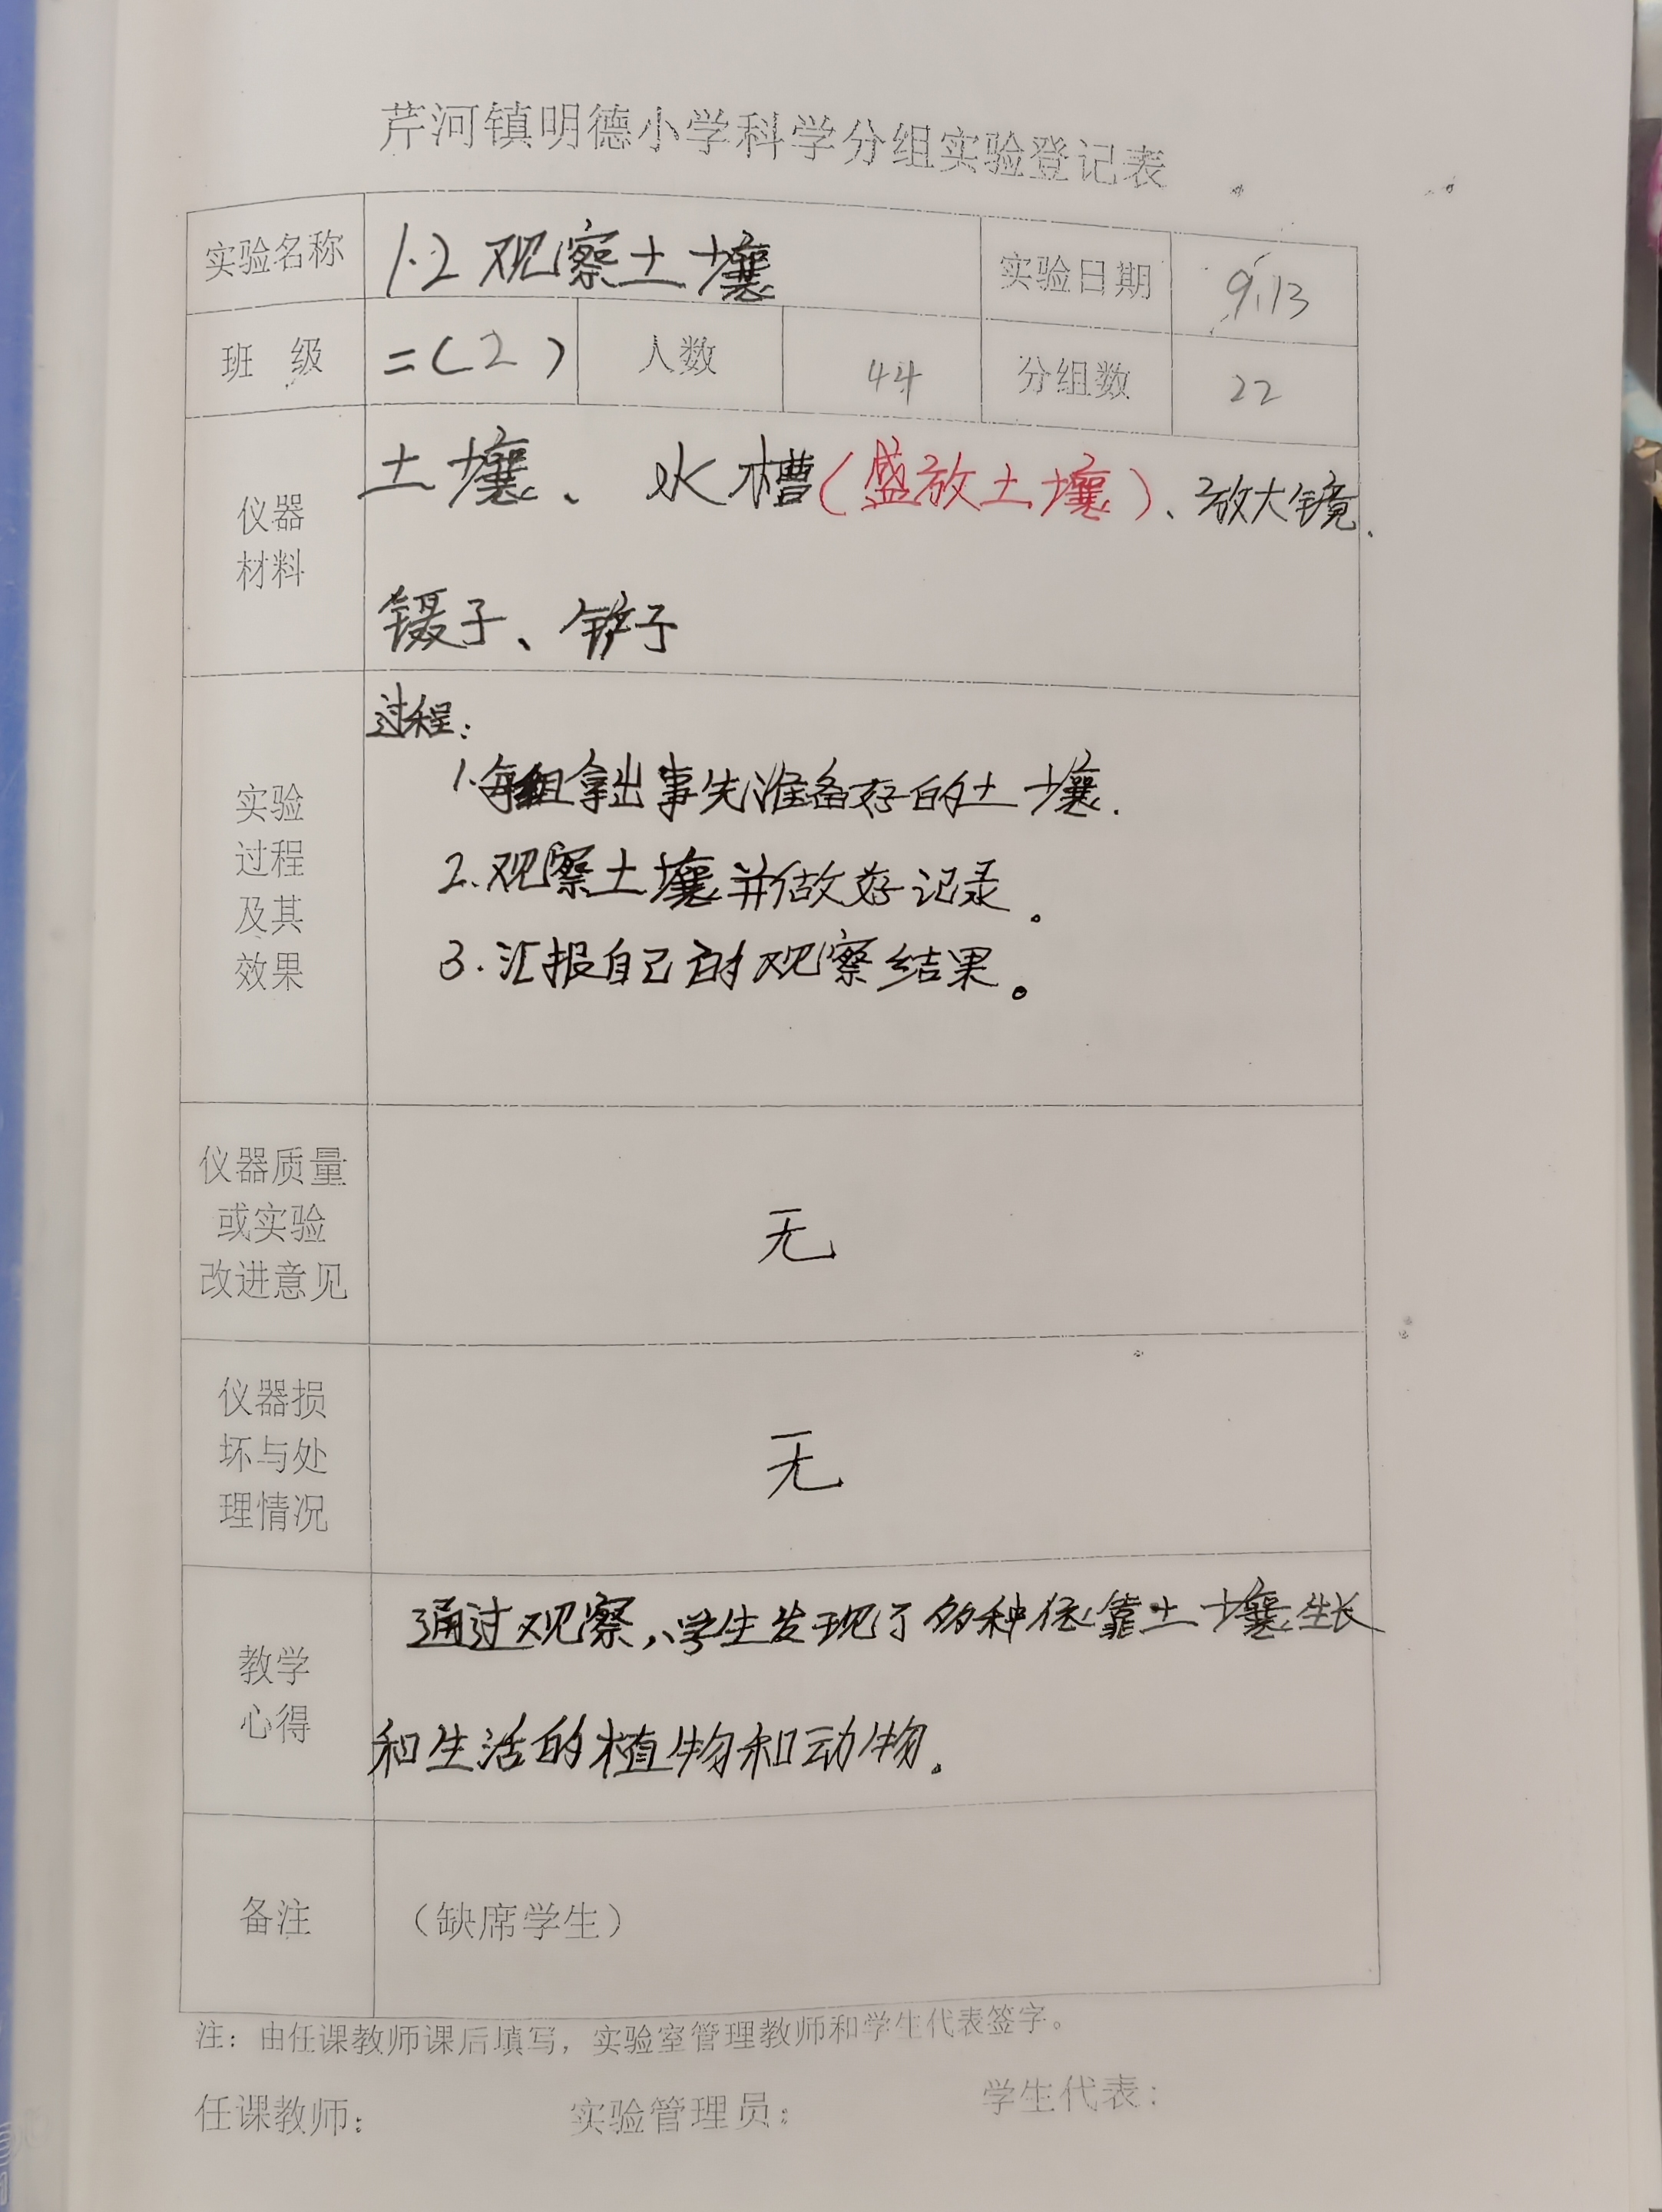 芹河镇明德小学科学分组实验登记表
实验名称 1.2 观察土壤 实验日期 9.13
班 级 二(2) 人数 44 分组数 22
仪器
材料
土壤、水槽(盛放土壤)、放大镜、
镊子、铲子
实验
过程
及其
效果
过程:
1.每组拿出事先准备好的土壤.
2.观察土壤并做好记录。
3.汇报自己的观察结果。
仪器质量
或实验
改进意见
无
仪器损
坏与处
理情况
无
教学
心得
通过观察,学生发现了多种依靠土壤生长
和生活的植物和动物。
备注 (缺席学生)
注: 由任课教师课后填写, 实验室管理教师和学生代表签字。
任课教师: 实验管理员: 学生代表: